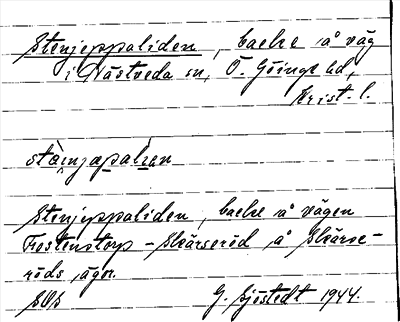 Stenjeppaliden, backe å väg
i Nästveda sn, Ö. Göinge hd,
Krist. l.
Stenjeppaliden, backe å vägen
Frostentorp - Skärseröd å Skärse-
röds ägor.
G. Sjöstedt 1944.